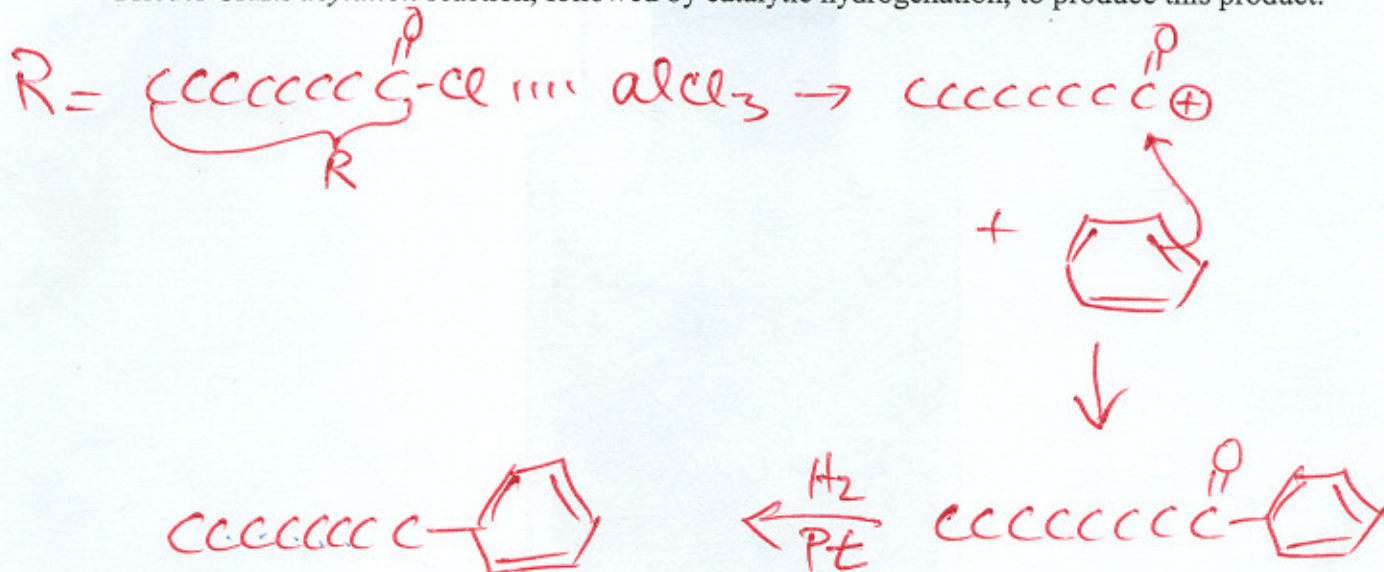 reaction, followed by catalytic hydrogenation, to produce this product.
O O
R = CCCCCCCC-Cl .... AlCl3 → CCCCCCCC ⊕
R
+
O
H2
CCCCCCCC ← CCCCCCCC
Pt